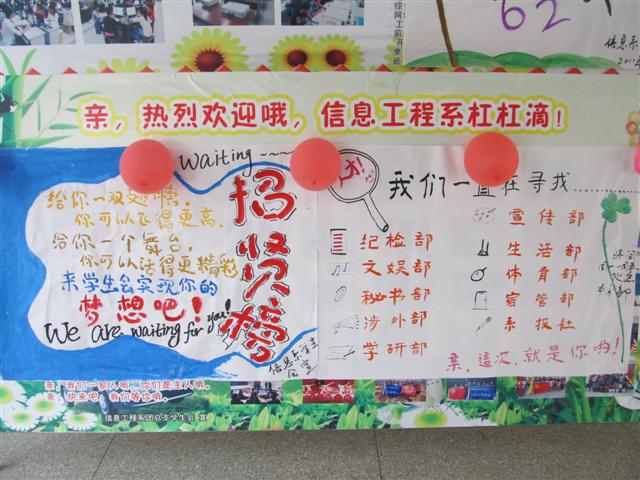 综网工前开单嵌
62
信息系
亲，热烈欢迎哦，信息工程系杠杠滴！
Waiting ~~~
给你一双翅膀，
你可以飞得更高.
给你一个舞台，
你可以活得更精彩
来学生会实现你的
梦想吧！
We are waiting for you!
招贤榜
信息系学生会宣
我们一直在寻找......
纪检部
文娱部
秘书部
涉外部
学研部
宣传部
生活部
体育部
宿管部
系报社
亲，這次，就是你哟！
亲，我们一家人哦，你们是主人哦。
亲，快来吧，我们等你哦。
信息工程系团总支学生会 宣